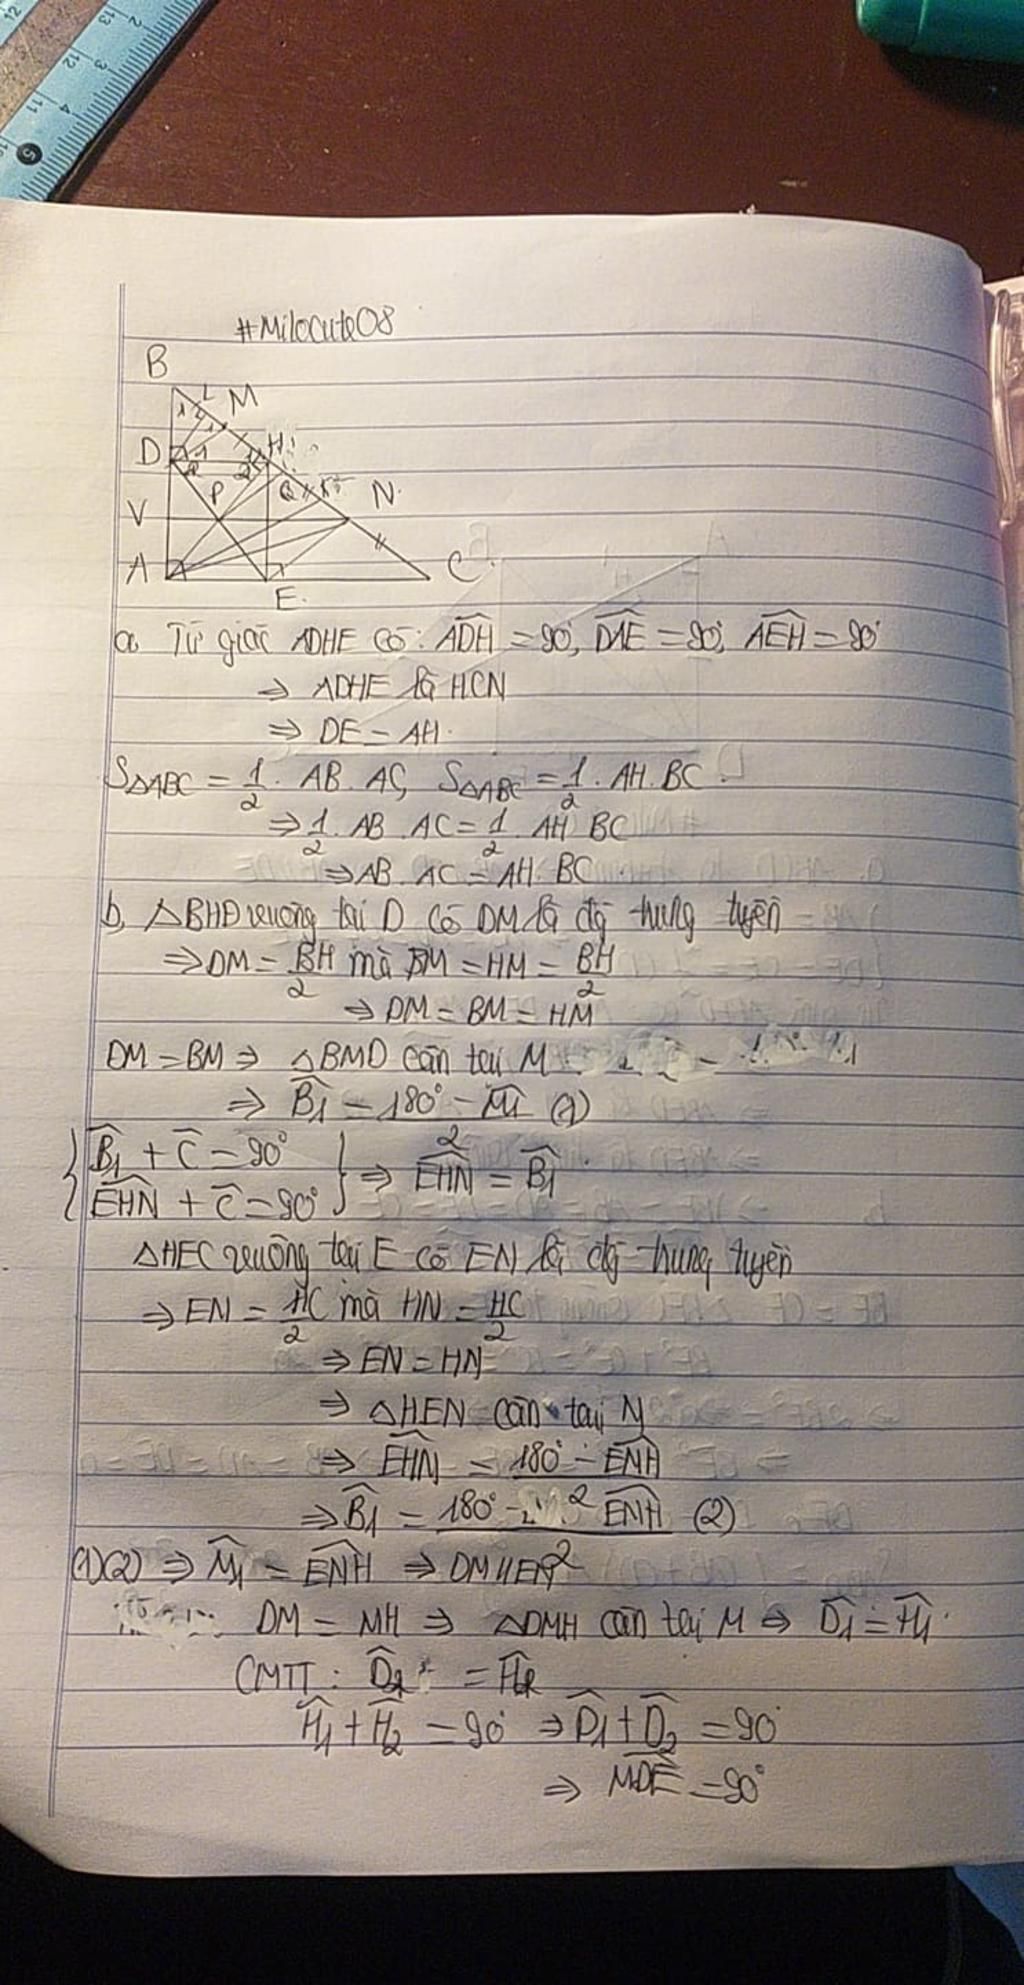 #Milocute08
B
L M
1 2 1
D 1 H
2 2
P Q K N
V
A C
E
a Tứ giác ADHE có: ADH = 90°, DAE = 90°, AEH = 90°
⇒ ADHE là HCN
⇒ DE = AH.
S△ABC = 1/2 . AB . AC, S△ABC = 1/2 . AH . BC
⇒ 1/2 . AB . AC = 1/2 . AH BC
⇒ AB . AC = AH . BC .
b, △BHD vuông tại D có DM là đg trung tuyến
⇒ DM = BH/2 mà BM = HM = BH/2
⇒ DM = BM = HM
DM = BM ⇒ △BMD cân tại M
⇒ B1 = (180° - M1)/2 (1)
{ B1 + C = 90°
EHN + C = 90° } ⇒ EHN = B1
△HEC vuông tại E có EN là đg trung tuyến
⇒ EN = HC/2 mà HN = HC/2
⇒ EN = HN
⇒ △HEN cân tại N
⇒ EHN = (180° - ENH)/2
⇒ B1 = (180° - ENH)/2 (2)
(1)(2) ⇒ M1 = ENH ⇒ DM // EN
DM = MH ⇒ △DMH cân tại M ⇒ D1 = H1.
CMTT : D2 = H2
H1 + H2 = 90° ⇒ D1 + D2 = 90°
⇒ MDE = 90°